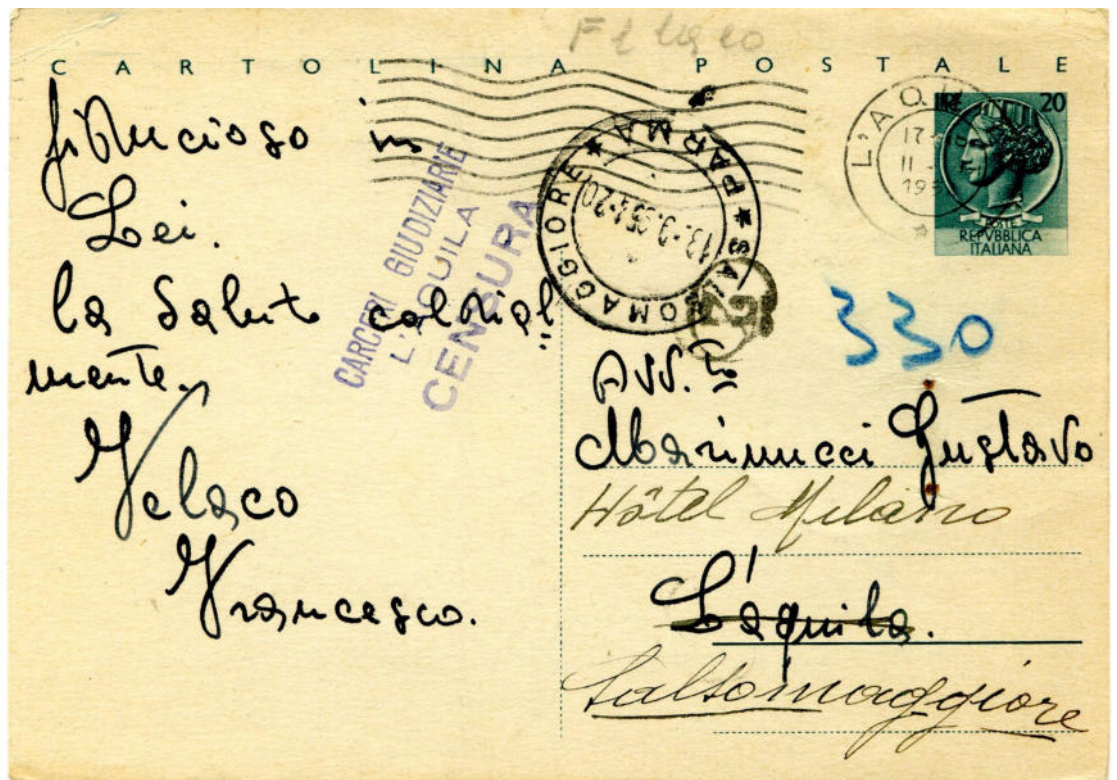 CARTOLINA POSTALE
fiducioso in
Lei.
La Saluto cordial
mente.
Felaco
Francesco.
CARCERI GIUDIZIARIE
L'AQUILA
CENSURA
SALSOMAGGIORE * PARMA *
13.-9.954-20
L'AQUILA
LIRE 20
POSTE
REPVBBLICA
ITALIANA
330
Avv.to
Marinucci Gustavo
Hôtel Milano
L'aquila.
Salsomaggiore